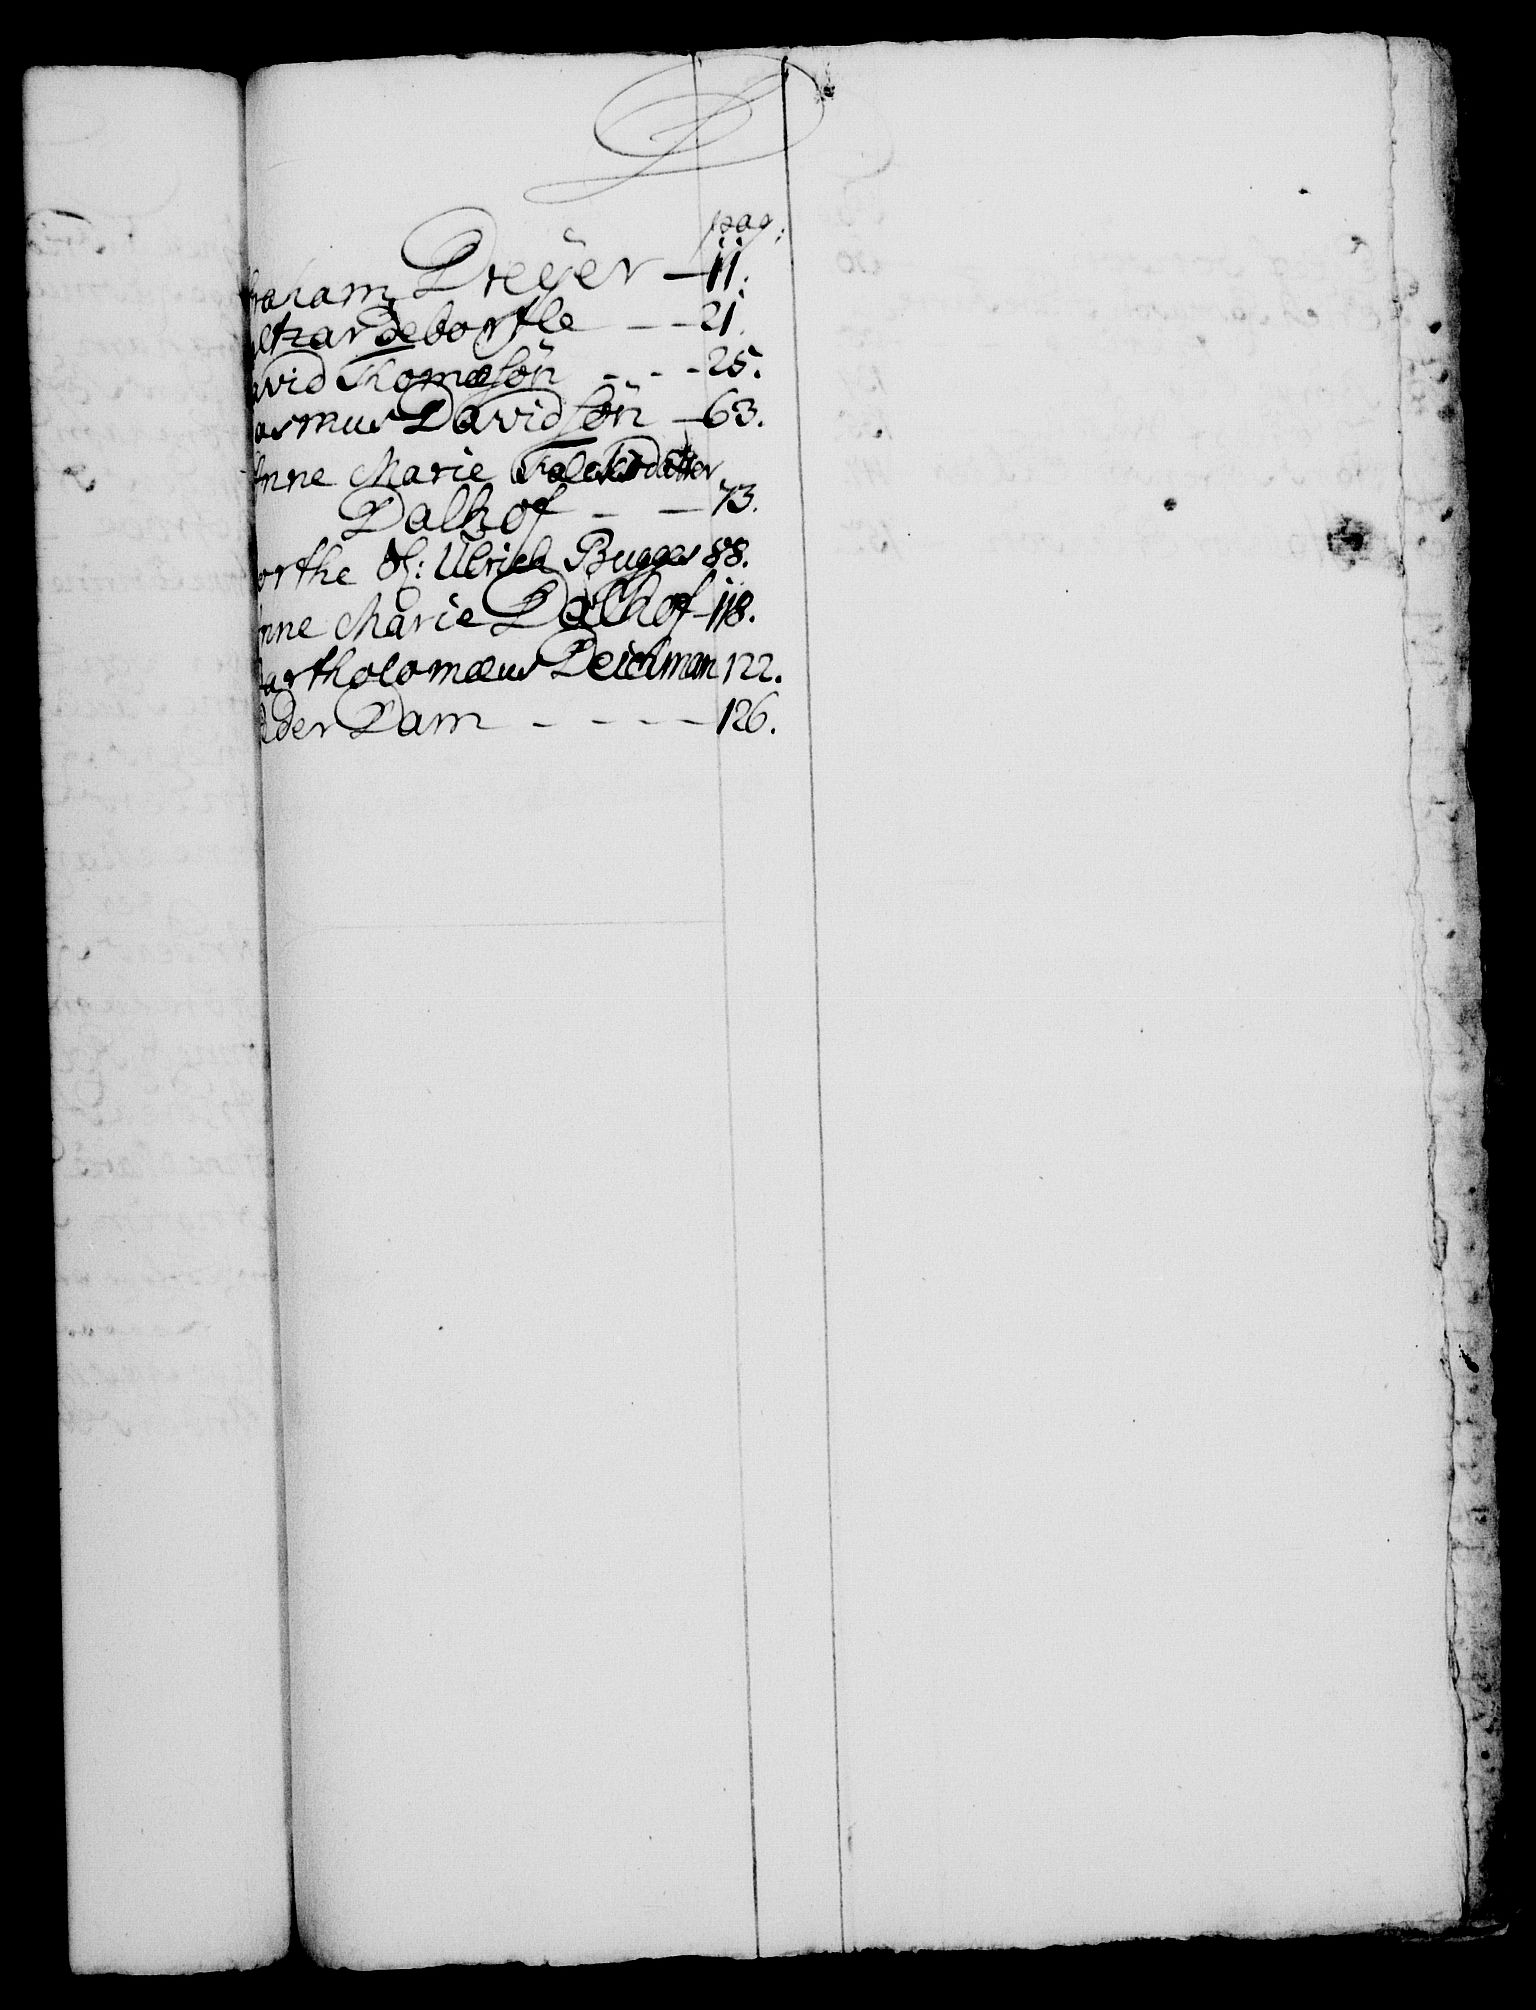 D
pag:
raham Dreÿer — 11.
ltzar Deborfle - - 21.
avid Thomæsön - - - 25.
asmus Davidsön — 63.
Anne Marie Falcksdatter
Dalhof - — 73.
orthe Sl: Ulrich Bugges 88.
nne Marie Dalhof - 118.
artholomæus Deichman 122.
eder Dam - - - - - 126.